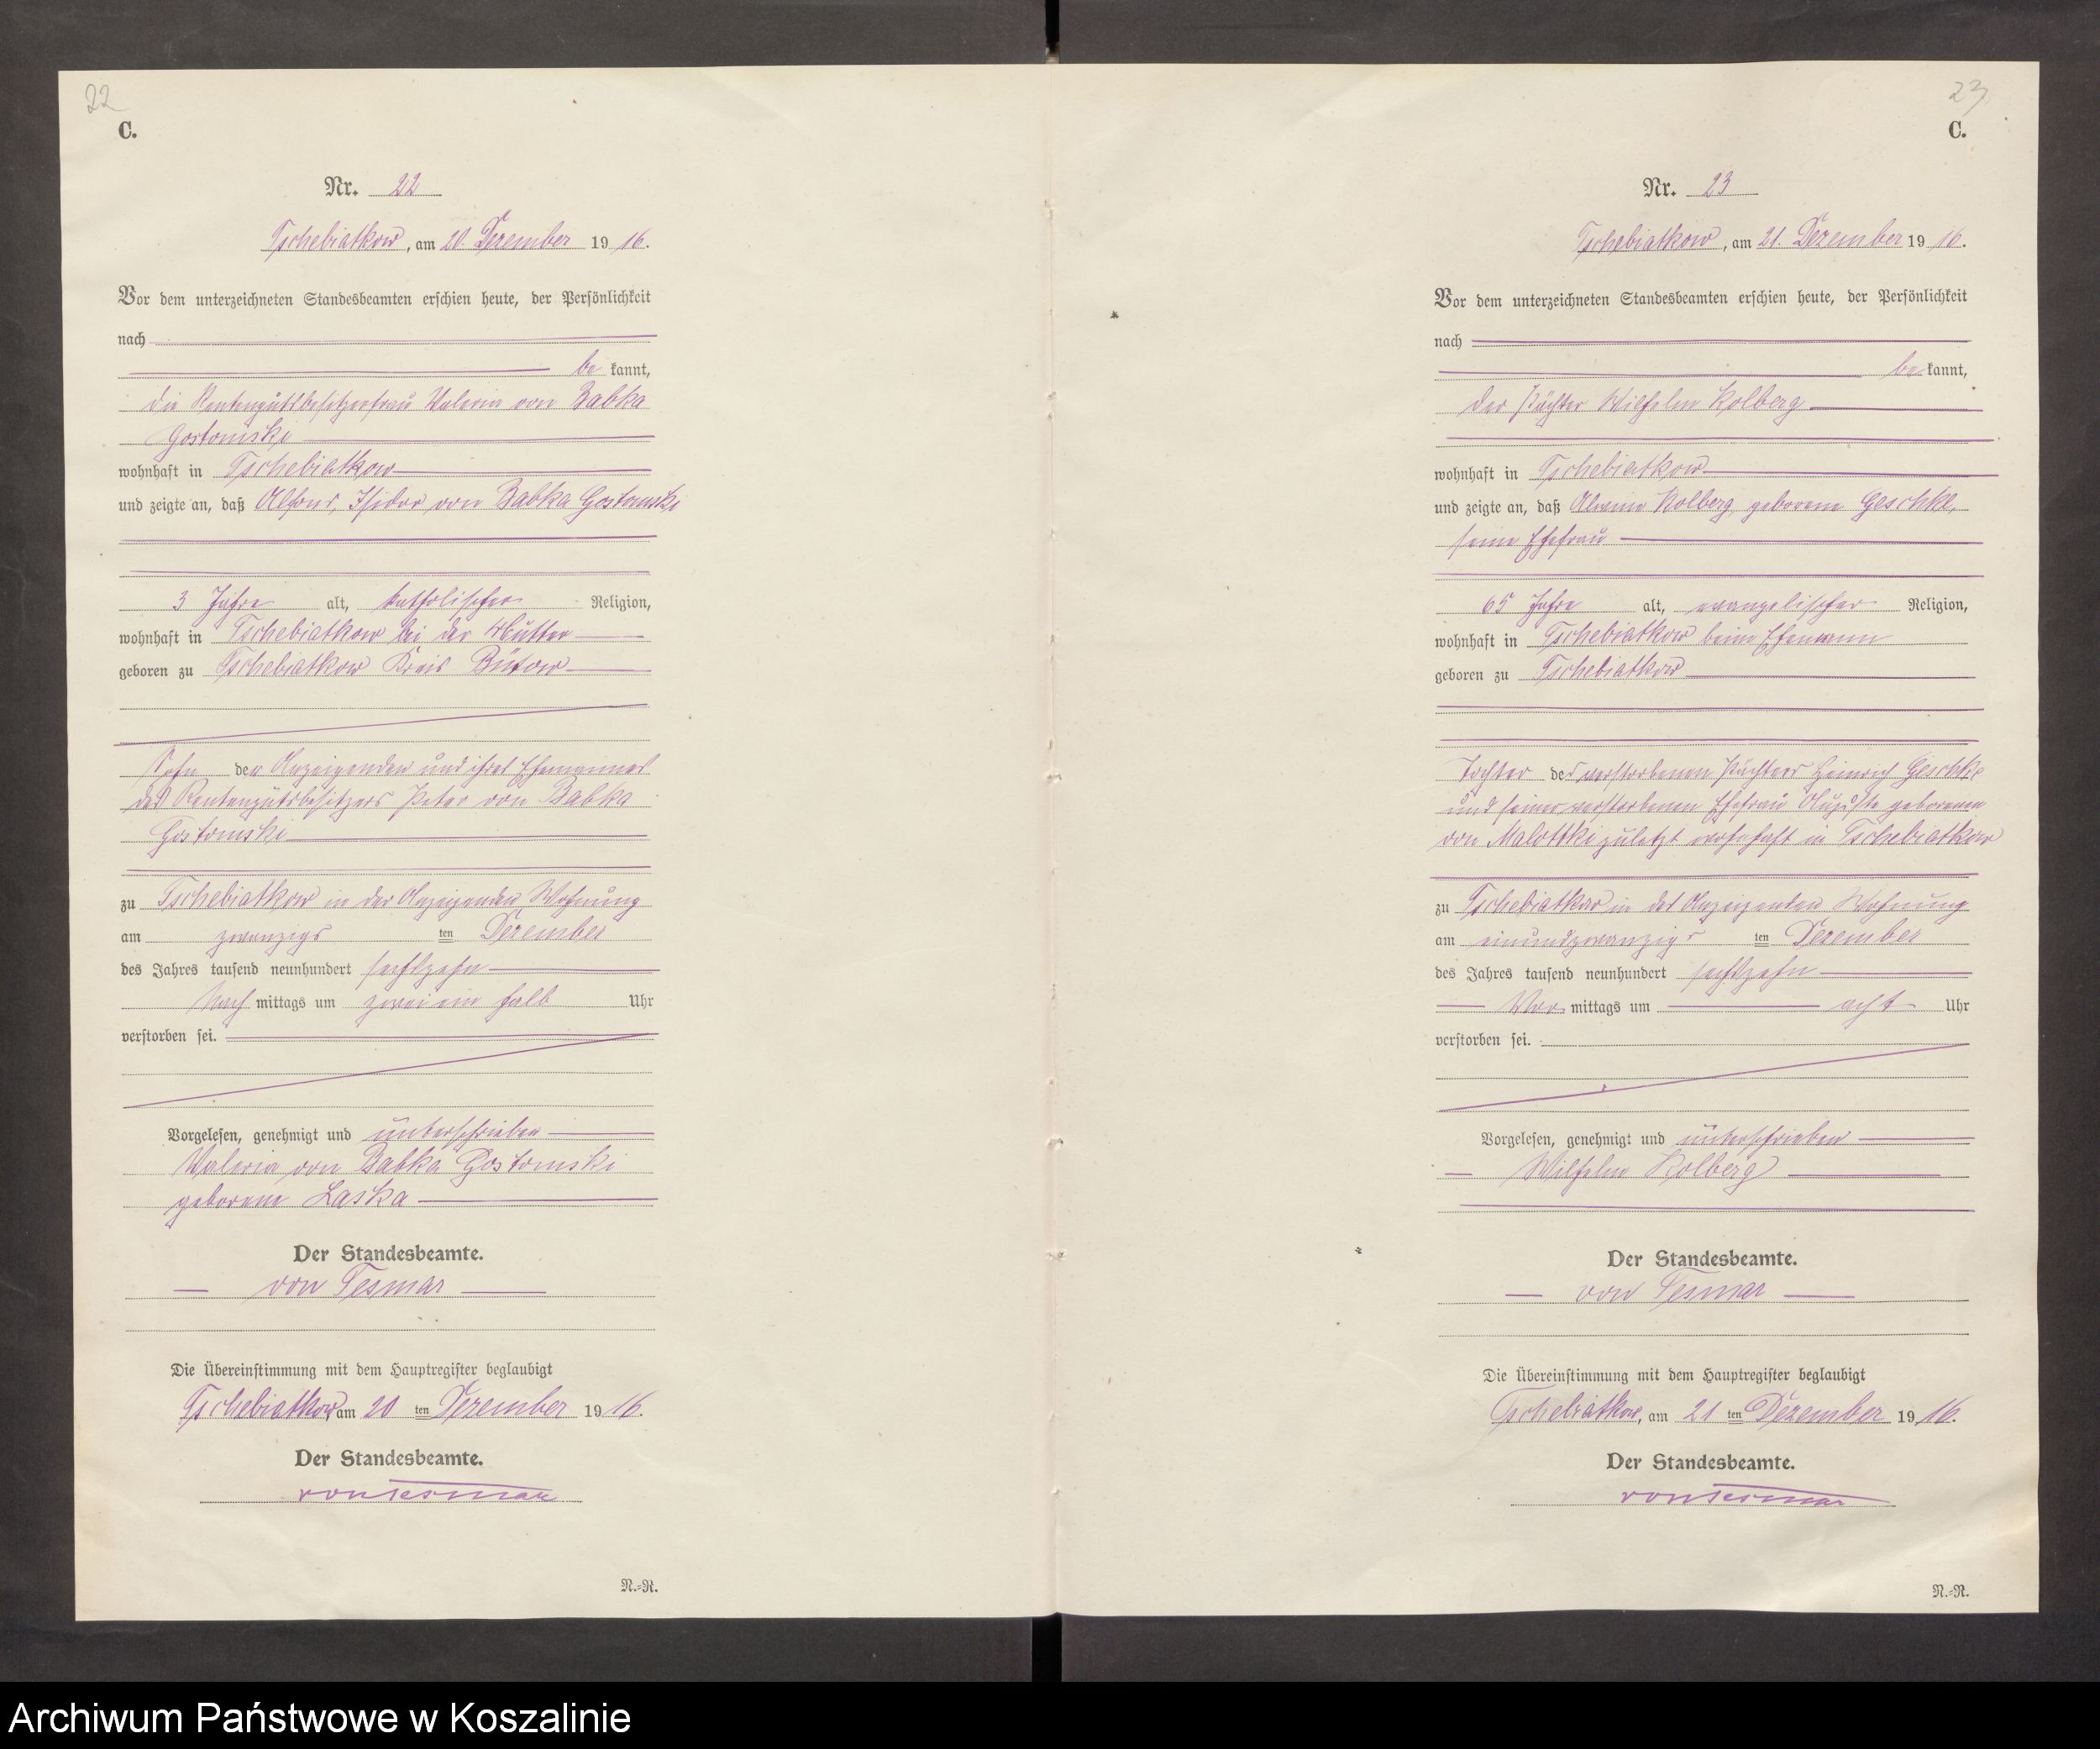 22
C.
Nr. 22
Tschebiatkow, am 20. Dezember 1916.
Vor dem unterzeichneten Standesbeamten erschien heute, der Persönlichkeit
nach
be kannt,
die Rentengutsbesitzerfrau Valeria von Babka
Gostomski
wohnhaft in Tschebiatkow
und zeigte an, daß Alfons, Isidor von Babka Gostomski
3 Jahre alt, katholischer Religion,
wohnhaft in Tschebiatkow bei der Mutter
geboren zu Tschebiatkow Kreis Bütow
Sohn der Anzeigenden und ihres Ehemannes
des Rentengutsbesitzers Peter von Babka
Gostomski
zu Tschebiatkow in der Anzeigenden Wohnung
am zwanzigs ten Dezember
des Jahres tausend neunhundert sechszehn
Nach mittags um zwei ein halb Uhr
verstorben sei.
Vorgelesen, genehmigt und unterschrieben
Valeria von Babka Gostomski
geborene Laska
Der Standesbeamte.
von Tesmar
Die Übereinstimmung mit dem Hauptregister beglaubigt
Tschebiatkow, am 20 ten Dezember 1916.
Der Standesbeamte.
von Tesmar
N.-R.
23
C.
Nr. 23
Tschebiatkow, am 21. Dezember 1916.
Vor dem unterzeichneten Standesbeamten erschien heute, der Persönlichkeit
nach
be kannt,
der Pächter Wilhelm Kolberg
wohnhaft in Tschebiatkow
und zeigte an, daß Alwine Kolberg, geborene Geschke,
seine Ehefrau
65 Jahre alt, evangelischer Religion,
wohnhaft in Tschebiatkow beim Ehemann
geboren zu Tschebiatkow
Tochter des verstorbenen Pächters Heinrich Geschke
und seiner verstorbenen Ehefrau Auguste geborenen
von Malottki zuletzt wohnhaft in Tschebiatkow
zu Tschebiatkow in des Anzeigenden Wohnung
am einundzwanzigs ten Dezember
des Jahres tausend neunhundert sechszehn
Vor mittags um acht Uhr
verstorben sei.
Vorgelesen, genehmigt und unterschrieben
Wilhelm Kolberg
Der Standesbeamte.
von Tesmar
Die Übereinstimmung mit dem Hauptregister beglaubigt
Tschebiatkow, am 21 ten Dezember 1916.
Der Standesbeamte.
von Tesmar
N.-R.
Archiwum Państwowe w Koszalinie